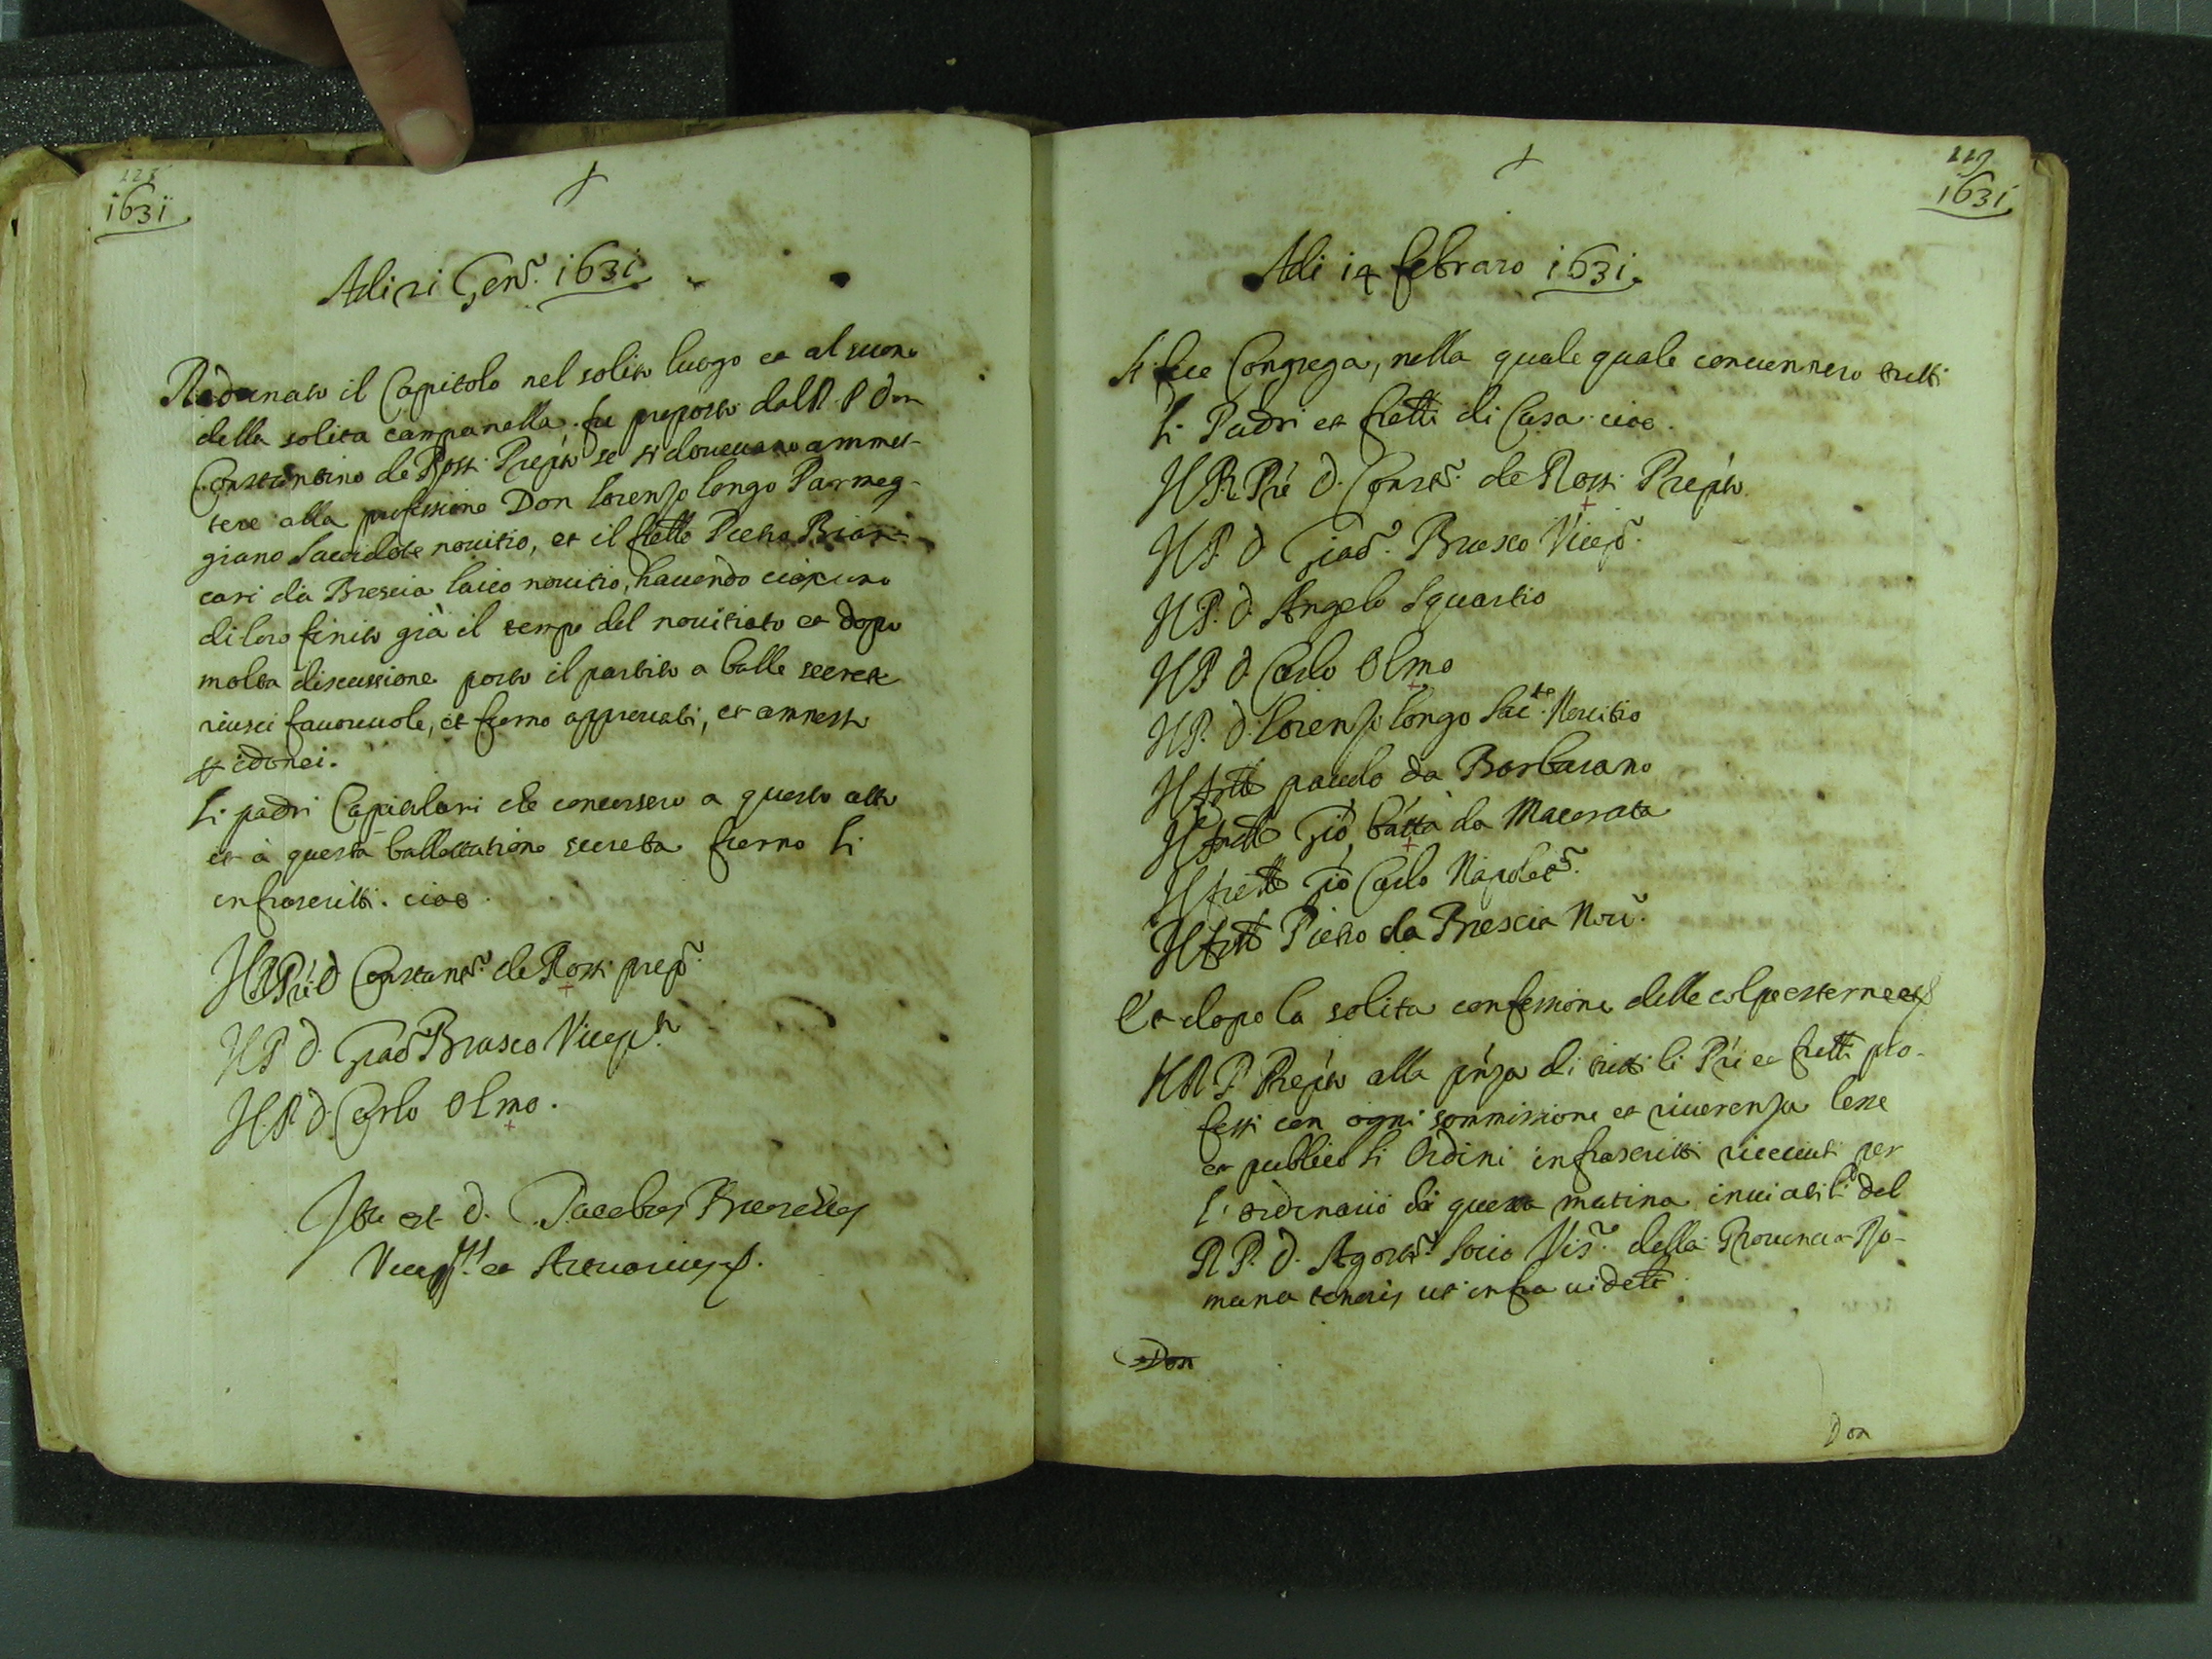 228
1631
+
Adi 21 Gen.o 1631
Radunato il Capitolo nel solito luogo et al suono
della solita campanella fu proposto dal R. P. Don
Constantino de Rossi Prepto se si dovevano ammet-
tere alla professione Don Lorenzo longo Parmeg-
giano Sacerdote novitio, et il fratello Pietro
cari da Brescia laico novitio, havendo ciascuno
di loro finito già il tempo del novitiato et dopo
molta discussione posto il partito a balle secrete
riusci favorevole, et furno approvati, et ammessi
idonei.
Li padri Capitulari che concorsero a questo atto
et à questa ballottatione secreta furno li
infrascritti. cioe.
Il R. Pre D Constant.o de Rossi prep.o
Il P. D. Giac.o Brusco Vicep.to
Il P. D. Carlo Olmo.
Ita est D. Jacobus Bruscus
Vicep.tus et Actuarius
229
1631
+
Adi 14 febraro 1631.
Si fece Congrega, nella quale quale convennero tutti
li Padri et fratti di Casa. cioe.
Il R. Pre D. Const.o de Rossi Prepto
Il P. D. Giac.o Brusco Vicep.o
Il P. D. Angelo Squartio
Il P. D Carlo Olmo
Il P. D. Lorenzo longo Sac.te Novitio
Il fratto paulo da Barbarano
Il fratto Gio batta da Macerata
Il fratto Gio Carlo Napolet.o
Il fratto Pietro da Brescia Nov.o
Et dopo la solita confessione delle colpe esterne
Il R. P. Prepto alla pnza di tutti li Pri et fratti pro-
fessi con ogni sommissione et riverenza lesse
et publicò li Ordini infrascritti ricevuti per
l'ordinario di questa matina inviatili dal
R. P. D. Agost.o Socio Vis.r della Provincia Ro-
mana tenoris ut infra videtr.
Don
Don